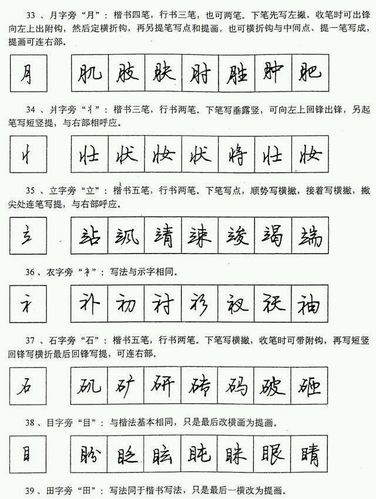 33、月字旁“月”：楷书四笔，行书三笔，也可两笔。下笔先写左撇，收笔时可出锋
向左上出附钩，然后定横折钩，再另提笔写点和提画，也可横折钩与中间点、提一笔写成，
提画可连右部。
月 肌 肢 肤 肘 胜 肿 肥
34、爿字旁“丬”：楷书三笔，行书两笔。下笔写垂露竖，可向左上回锋出锋，另起
笔写短竖提，与右部相呼应。
丬 壮 状 妆 状 将 壮 妆
35、立字旁“立”：楷书五笔，行书两笔。下笔写点，顺势写横撇，接着写横撇，撇
尖处连笔写提，与右部呼应。
立 站 飒 靖 竦 竣 竭 端
36、衣字旁“衤”：写法与示字相同。
衤 补 初 衬 衫 衩 袄 袖
37、石字旁“石”：楷书五笔，行书两笔。下笔写横撇，收笔时可带附钩，再写短竖
回锋写横折最后回锋写提，可连右部。
石 矾 矿 研 砖 码 破 砸
38、目字旁“目”：与楷法基本相同，只是最后改横画为提画。
目 盼 眨 眩 盹 昧 眼 睛
39、田字旁“田”：写法同于楷书写法，只是最后一横改为提画。